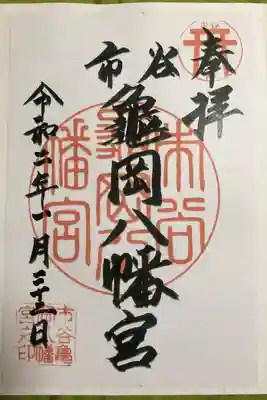 奉拝
市谷
龜岡八幡宮
令和二年一月三十一日
市谷
龜岡八
幡宮
市谷亀
岡八幡
宮之印